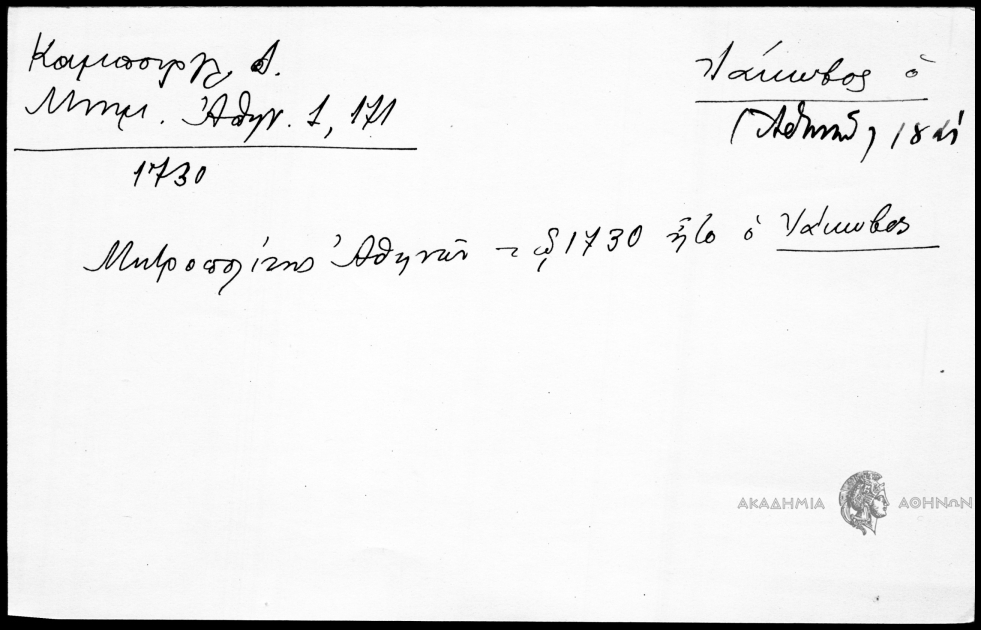 Καμπούργλ, Δ.
Μνημ. Ἀθην. 1, 171
1730
Ἰάκωβος ὁ
(Ἀθηνῶν, 18
Μητροπολίτης Ἀθηνῶν τῷ 1730 ἦτο ὁ Ἰάκωβος
ΑΚΑΔΗΜΙΑ ΑΘΗΝΩΝ